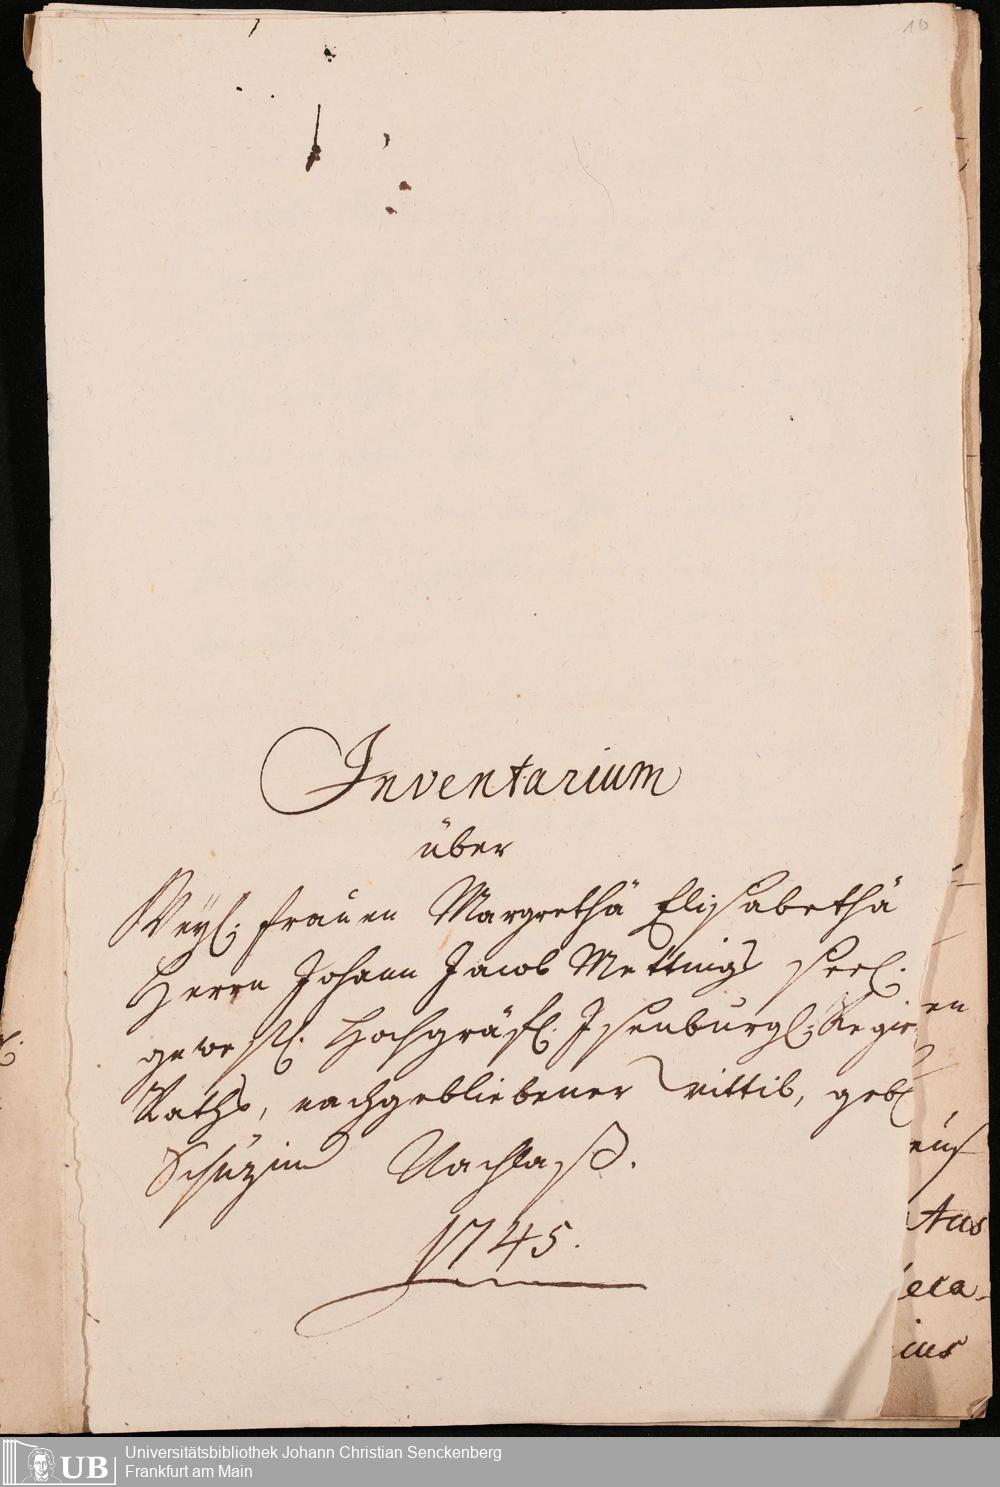 10
Inventarium
über
Weyl: frauen Margrethä Elisabethä
Herrn Johann Jacob Mettings seel.
gewesßl. Hochgräfl. Isenburgl: Regier
Raths, nachgebliebener wittib, geb.
Schüzin Nachlaß.
1745.
en
Aus
ius
UB
Universitätsbibliothek Johann Christian Senckenberg
Frankfurt am Main